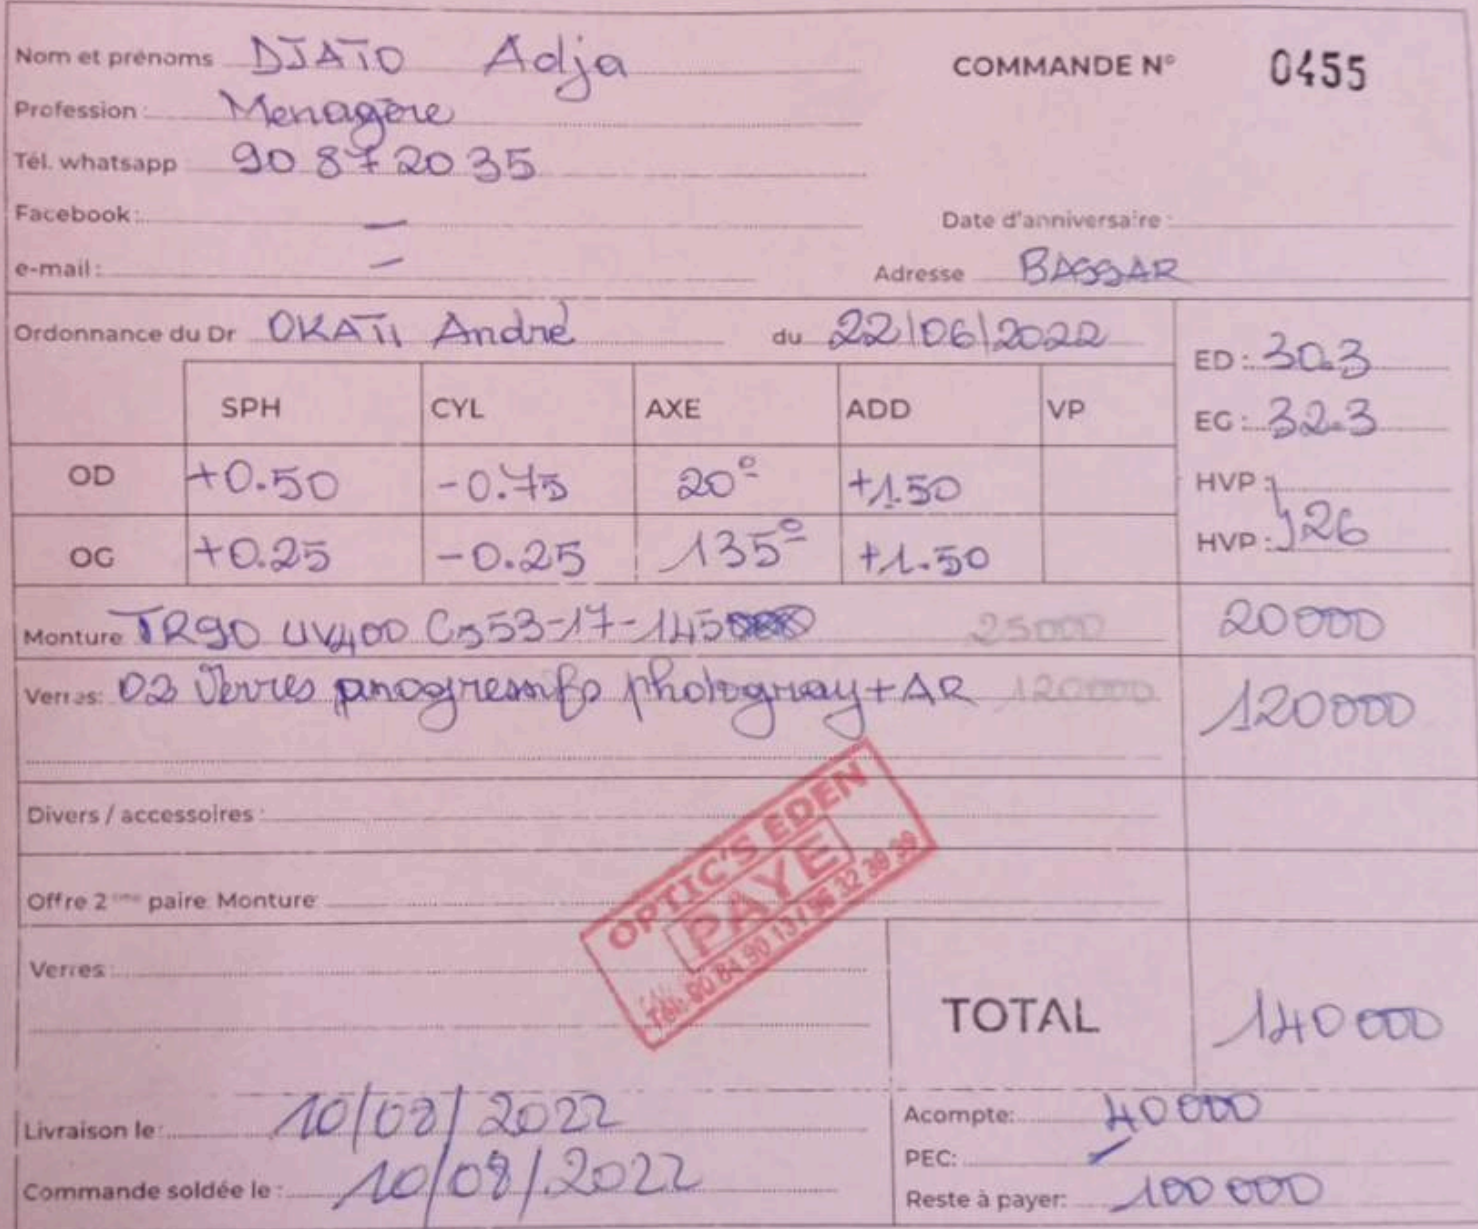 Nom et prénoms DJATO Adja
COMMANDE N° 0455
Profession : Menagère
Tél. whatsapp 90 87 20 35
Facebook : —
Date d'anniversaire :
e-mail : —
Adresse BASSAR
Ordonnance du Dr OKATI André du 22/06/2022
ED : 30.3
SPH CYL AXE ADD VP
EG : 32.3
OD +0.50 -0.75 20° +1.50
HVP :
OG +0.25 -0.25 135° +1.50
HVP : 26
Monture TR90 UV400 C5 53-17-145 25000 20000
Verres: 02 Verres progressifs photogray + AR 120000 120000
Divers / accessoires :
Offre 2ème paire Monture
OPTIC'S EDEN
PAYE
Tél: 90 84 90 13 / 96 32 39 39
Verres :
TOTAL 140000
Livraison le : 10/08/2022
Acompte: 40000
PEC: –
Commande soldée le : 10/08/2022
Reste à payer: 100000